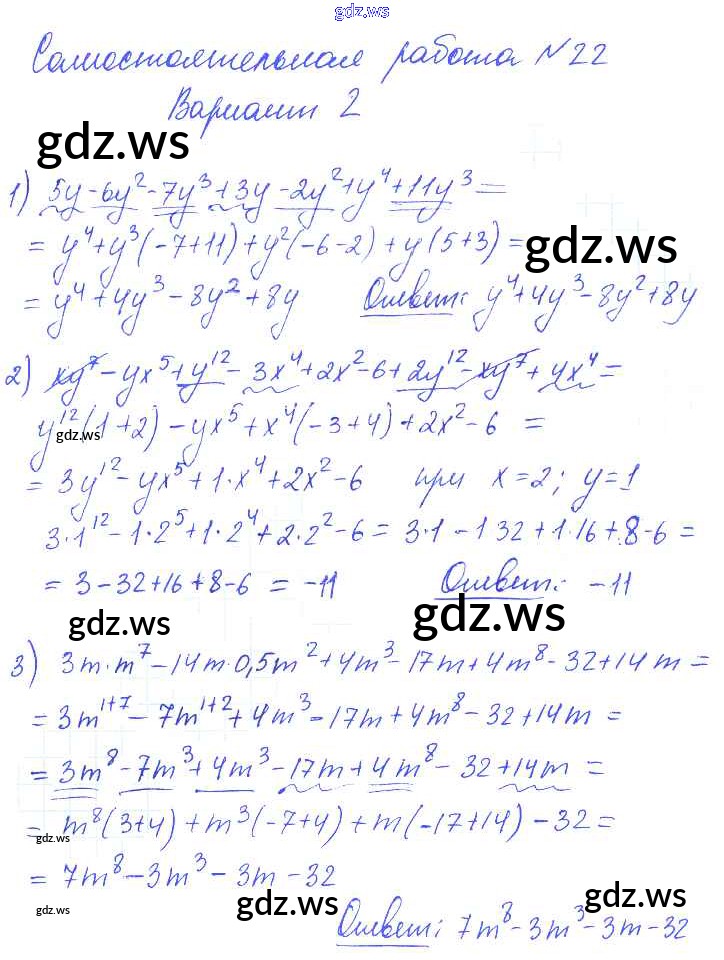 gdz.ws
Самостоятельная работа №22
Вариант 2
gdz.ws
1) 5y-6y²-7y³+3y-2y²+y⁴+11y³=
= y⁴+y³(-7+11)+y²(-6-2)+y(5+3)=
gdz.ws
= y⁴+4y³-8y²+8y Ответ: y⁴+4y³-8y²+8y
2) xy⁷-yx⁵+y¹²-3x⁴+2x²-6+2y¹²-xy⁷+4x⁴=
y¹²(1+2)-yx⁵+x⁴(-3+4)+2x²-6 =
gdz.ws
= 3y¹²-yx⁵+1·x⁴+2x²-6 при x=2; y=1
3·1¹²-1·2⁵+1·2⁴+2·2²-6= 3·1-1 32+1·16+8-6=
= 3-32+16+8-6 = -11 Ответ: -11
gdz.ws gdz.ws
3) 3m·m⁷-14m·0,5m²+4m³-17m+4m⁸-32+14m=
= 3m¹⁺⁷-7m¹⁺²+4m³-17m+4m⁸-32+14m=
= 3m⁸-7m³+4m³-17m+4m⁸-32+14m =
= m⁸(3+4)+m³(-7+4)+m(-17+14)-32=
gdz.ws
= 7m⁸-3m³-3m-32
gdz.ws gdz.ws gdz.ws
Ответ: 7m⁸-3m³-3m-32